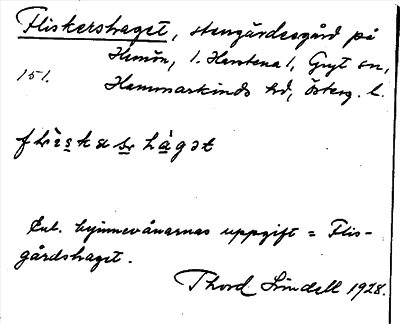 Fliskershaget, stengärdesgård på
Hemön, 1. Hemtena 1, Gryt sn,
151. Hammarkinds hd, Österg. l.
Enl. byinnevånarnas uppgift = Flis-
gårdshaget.
Thord Lindell 1928.